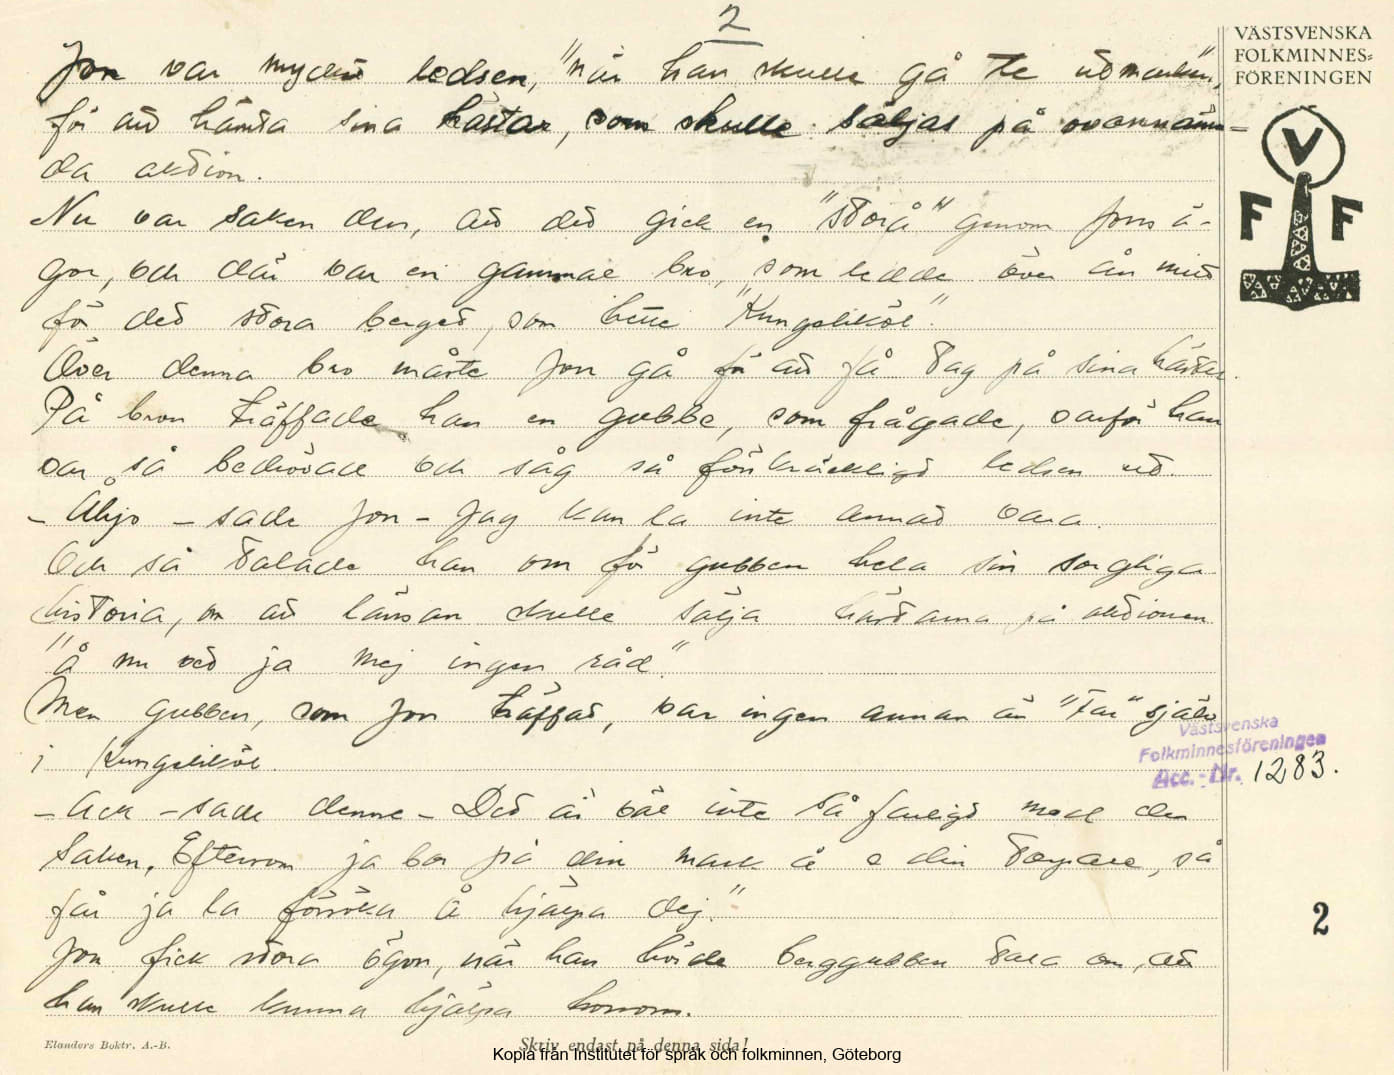 2
VÄSTSVENSKA
FOLKMINNES=
FÖRENINGEN
V
F F
Jon var mycket ledsen, "när han skulle gå te utmarken",
för att hämta sina hästar, som skulle säljas på ovannämn-
da aktion.
Nu var saken den, att det gick en "storå" genom Jons ä-
gor, och där var en gammal bro, som ledde över ån mitt
för det stora berget, som hette "Kungsliköl".
Över denna bro måste Jon gå för att få tag på sina hästar.
På bron träffade han en gubbe, som frågade, varför han
var så bedrövad och såg så förskräckligt ledsen ut.
- Åhjo - sade Jon - Jag kan la inte annat vara.
Och så talade han om för gubben hela sin sorgliga
historia, om att länsan skulle sälja hästarna på aktionen
"å nu vet ja mej ingen råd."
Men gubben, som Jon träffat, var ingen annan än "Far" själv
i Kungsliköl.
- Ack - sade denne - Det är väl inte så farligt med den
saken. Eftersom ja bor på din mark å e din torpare, så
får ja la försöka å hjälpa dej."
Jon fick stora ögon, när han hörde berggubben tala om, att
han skulle kunna hjälpa honom.
Västsvenska
Folkminnesföreningen
Acc.-Nr. 1283.
2
Elanders Boktr. A.-B.
Skriv endast på denna sida!
Kopia från Institutet för språk och folkminnen, Göteborg